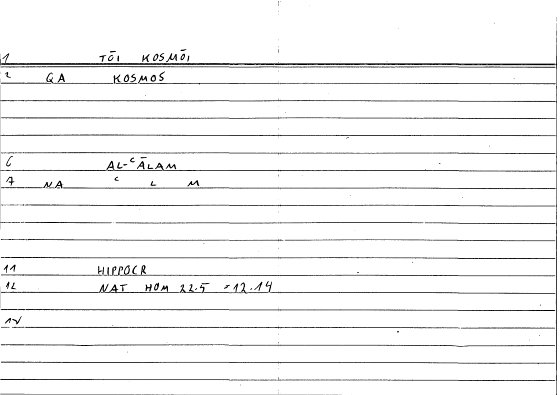 1 TŌI KOSMŌI
2 QA KOSMOS
6 AL-ʿĀLAM
7 NA ʿ L M
11 HIPPOCR
12 NAT HOM 22.5 = 12.14